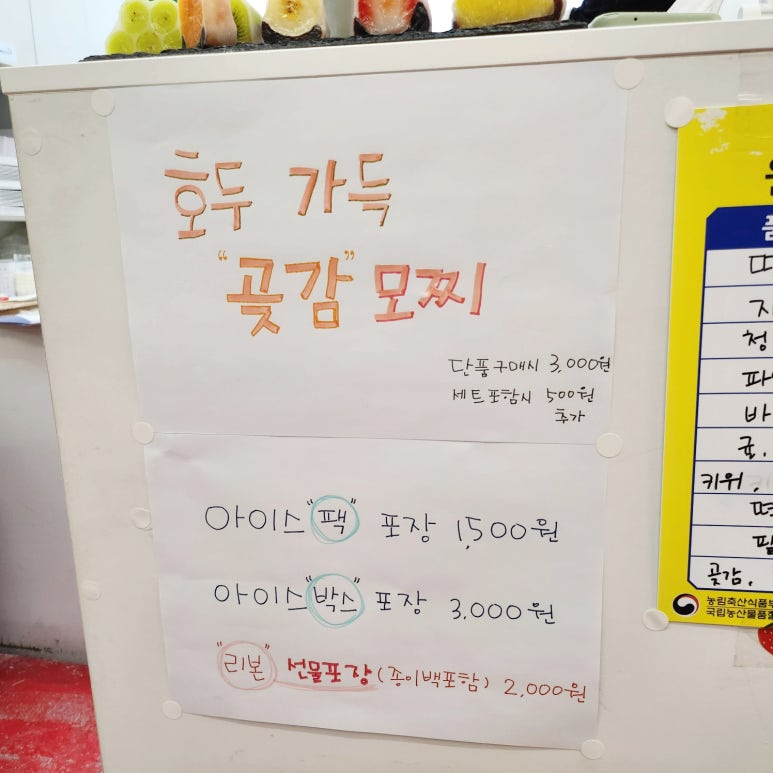 호두 가득
"곶감" 모찌
단품구매시 3,000원
세트포함시 500원
추가
아이스"팩" 포장 1,500원
아이스"박스" 포장 3,000원
"리본" 선물포장(종이백포함) 2,000원
키위,
곶감,
농림축산식품부